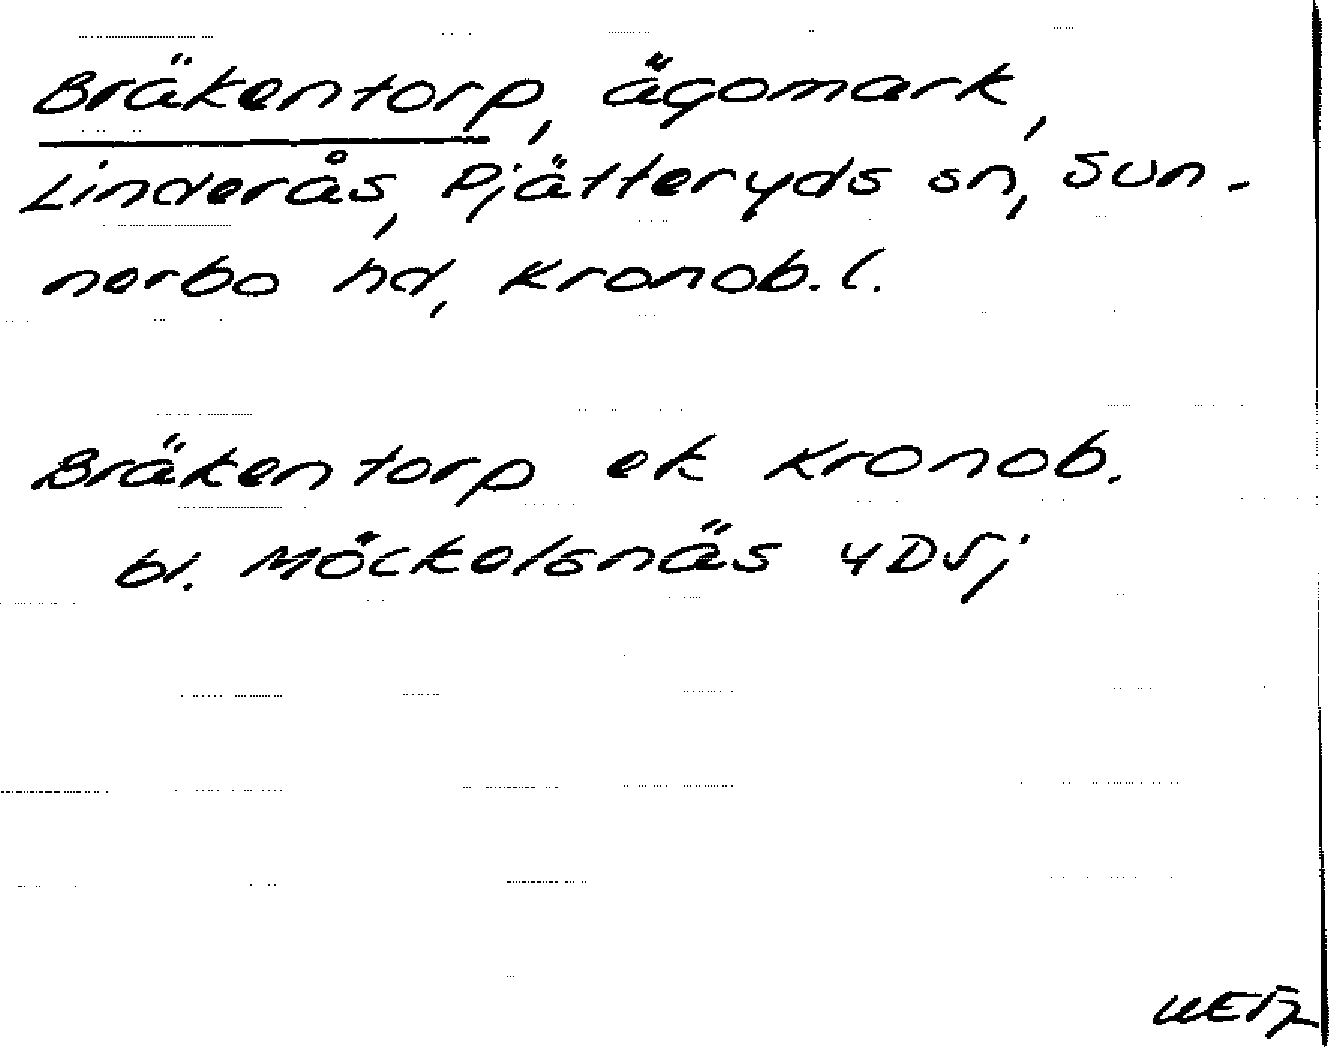 Bräkentorp, ägomark,
Linderås, Pjätteryds sn, Sun-
nerbo hd, Kronob. l.
Bräkentorp ek Kronob.
bl. Möckelsnäs 4D5j